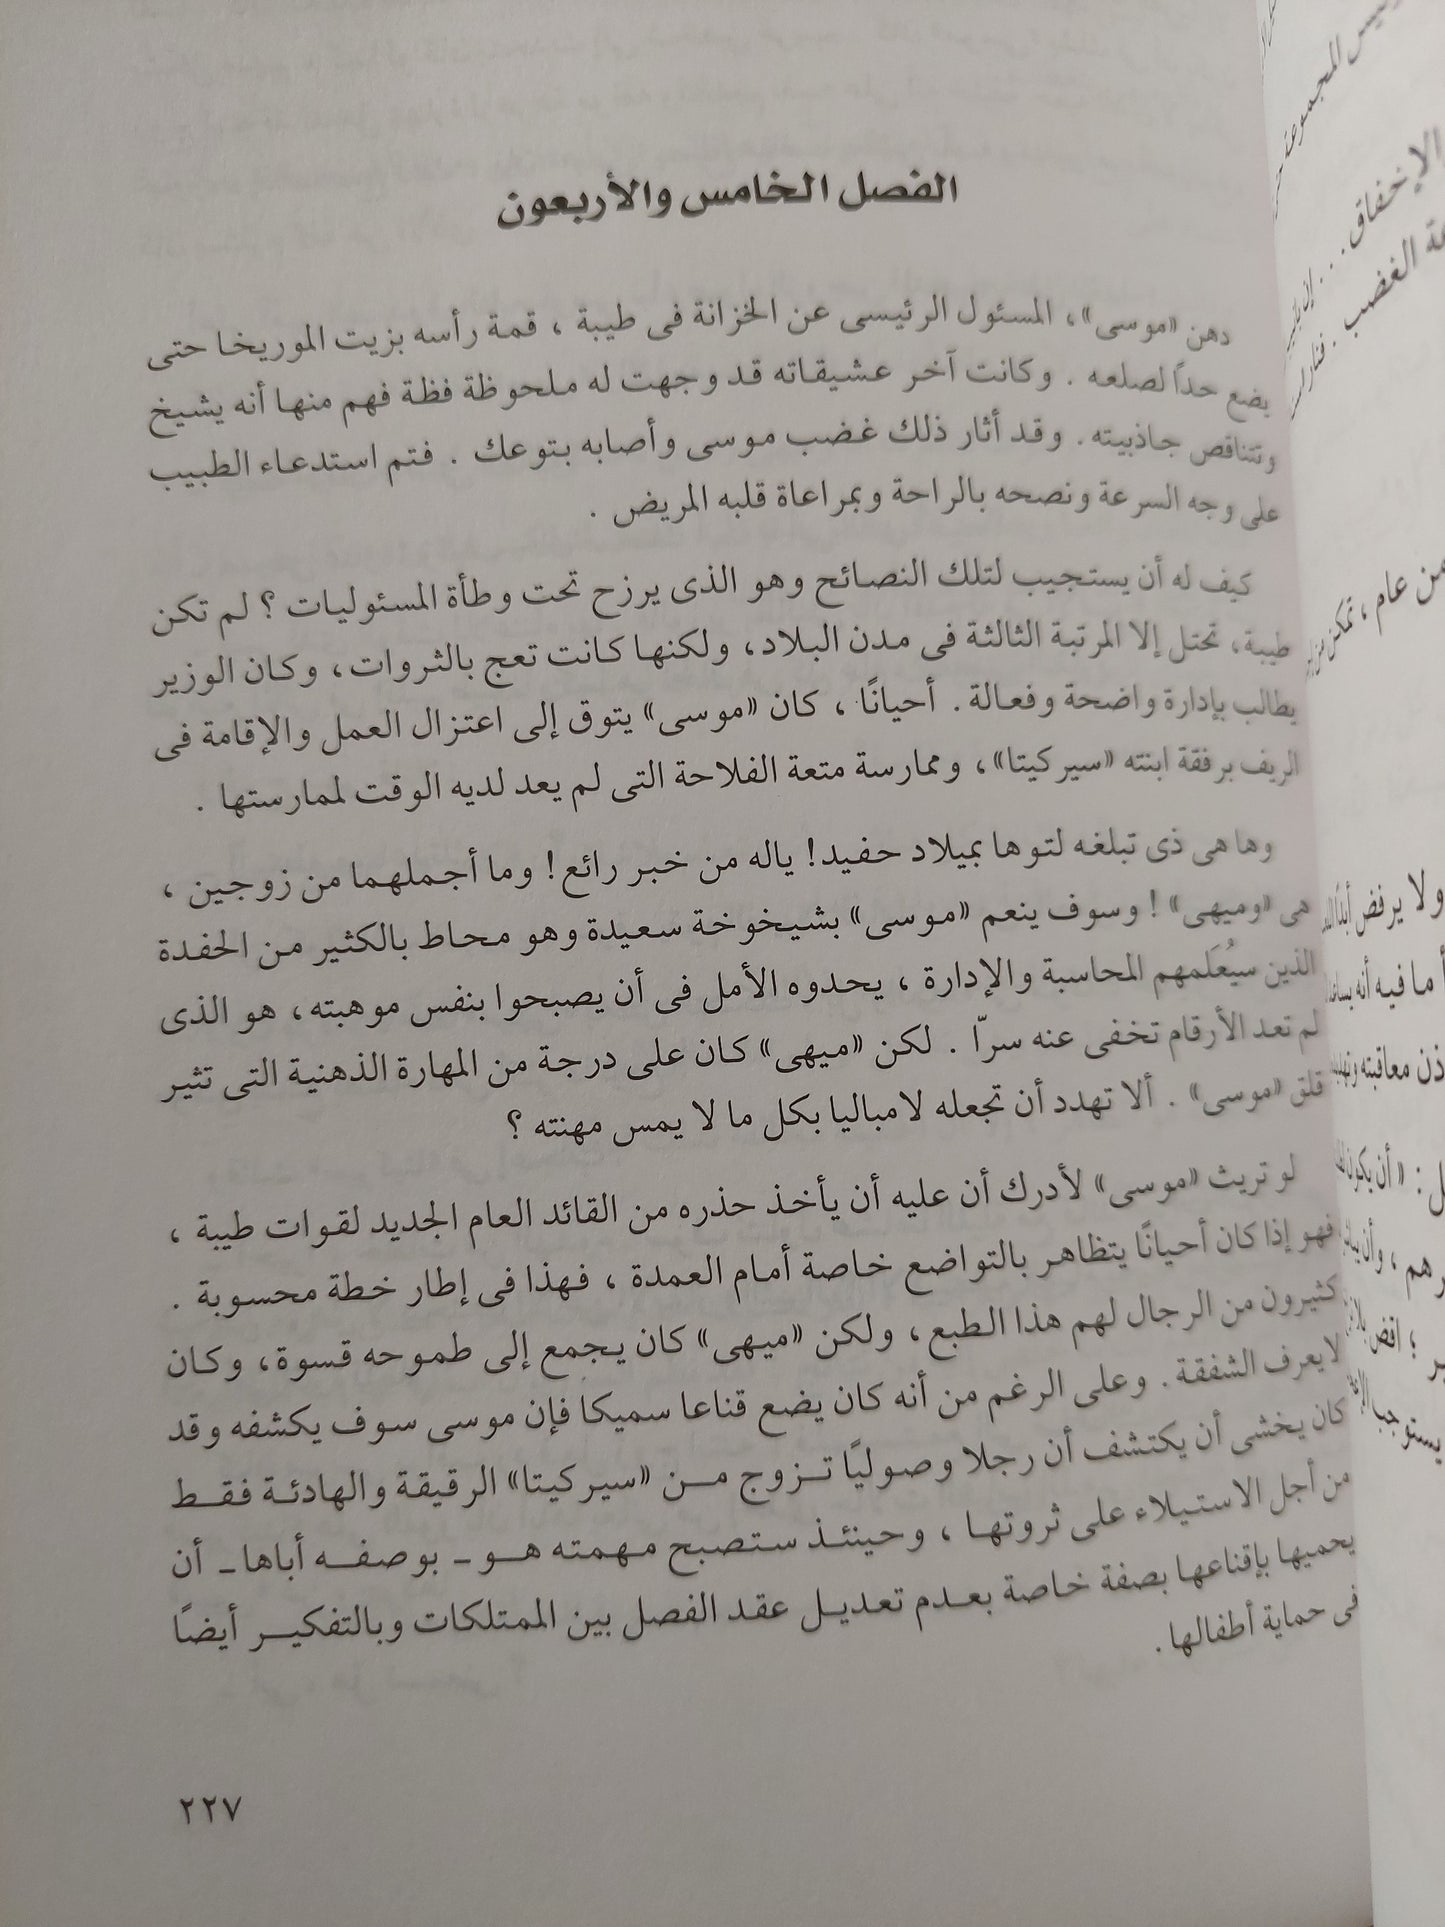 الفصل الخامس والأربعون
دهن «موسى»، المسئول الرئيسى عن الخزانة فى طيبة ، قمة رأسه بزيت الموريخا حتى
يضع حداً لصلعه . وكانت آخر عشيقاته قد وجهت له ملحوظة فظة فهم منها أنه يشيخ
وتتناقص جاذبيته . وقد أثار ذلك غضب موسى وأصابه بتوعك . فتم استدعاء الطبيب
على وجه السرعة ونصحه بالراحة وبمراعاة قلبه المريض .
كيف له أن يستجيب لتلك النصائح وهو الذى يرزح تحت وطأة المسئوليات ؟ لم تكن
طيبة، تحتل إلا المرتبة الثالثة فى مدن البلاد، ولكنها كانت تعج بالثروات، وكان الوزير
يطالب بإدارة واضحة وفعالة. أحيانًا ، كان «موسى» يتوق إلى اعتزال العمل والإقامة فى
الريف برفقة ابنته «سيركيتا»، وممارسة متعة الفلاحة التى لم يعد لديه الوقت لممارستها .
وها هى ذى تبلغه لتوها بميلاد حفيد! ياله من خبر رائع! وما أجملهما من زوجين ،
هى «وميهى» ! وسوف ينعم «موسى» بشيخوخة سعيدة وهو محاط بالكثير من الحفدة
الذين سيُعَلمهم المحاسبة والإدارة ، يحدوه الأمل فى أن يصبحوا بنفس موهبته، هو الذى
لم تعد الأرقام تخفى عنه سرّا . لكن «ميهى» كان على درجة من المهارة الذهنية التى تثير
قلق «موسى» . ألا تهدد أن تجعله لامباليا بكل ما لا يمس مهنته ؟
لو تريث «موسى» لأدرك أن عليه أن يأخذ حذره من القائد العام الجديد لقوات طيبة ،
فهو إذا كان أحيانًا يتظاهر بالتواضع خاصة أمام العمدة ، فهذا فى إطار خطة محسوبة .
كثيرون من الرجال لهم هذا الطبع، ولكن «ميهى» كان يجمع إلى طموحه قسوة، وكان
لايعرف الشفقة . وعلى الرغم من أنه كان يضع قناعا سميكا فإن موسى سوف يكشفه وقد
كان يخشى أن يكتشف أن رجلا وصوليًا تزوج من «سيركيتا» الرقيقة والهادئة فقط
من أجل الاستيلاء على ثروتها ، وحينئذ ستصبح مهمته هو ـ بوصفه أباها ـ أن
يحميها بإقناعها بصفة خاصة بعدم تعديل عقد الفصل بين الممتلكات وبالتفكير أيضًا
فى حماية أطفالها .
٢٢٧
المجموعة
الإخفاق. . .
الغضب .
من عام ،
ولا يرفض أبدًا
ما فيه أنه
معاقبته